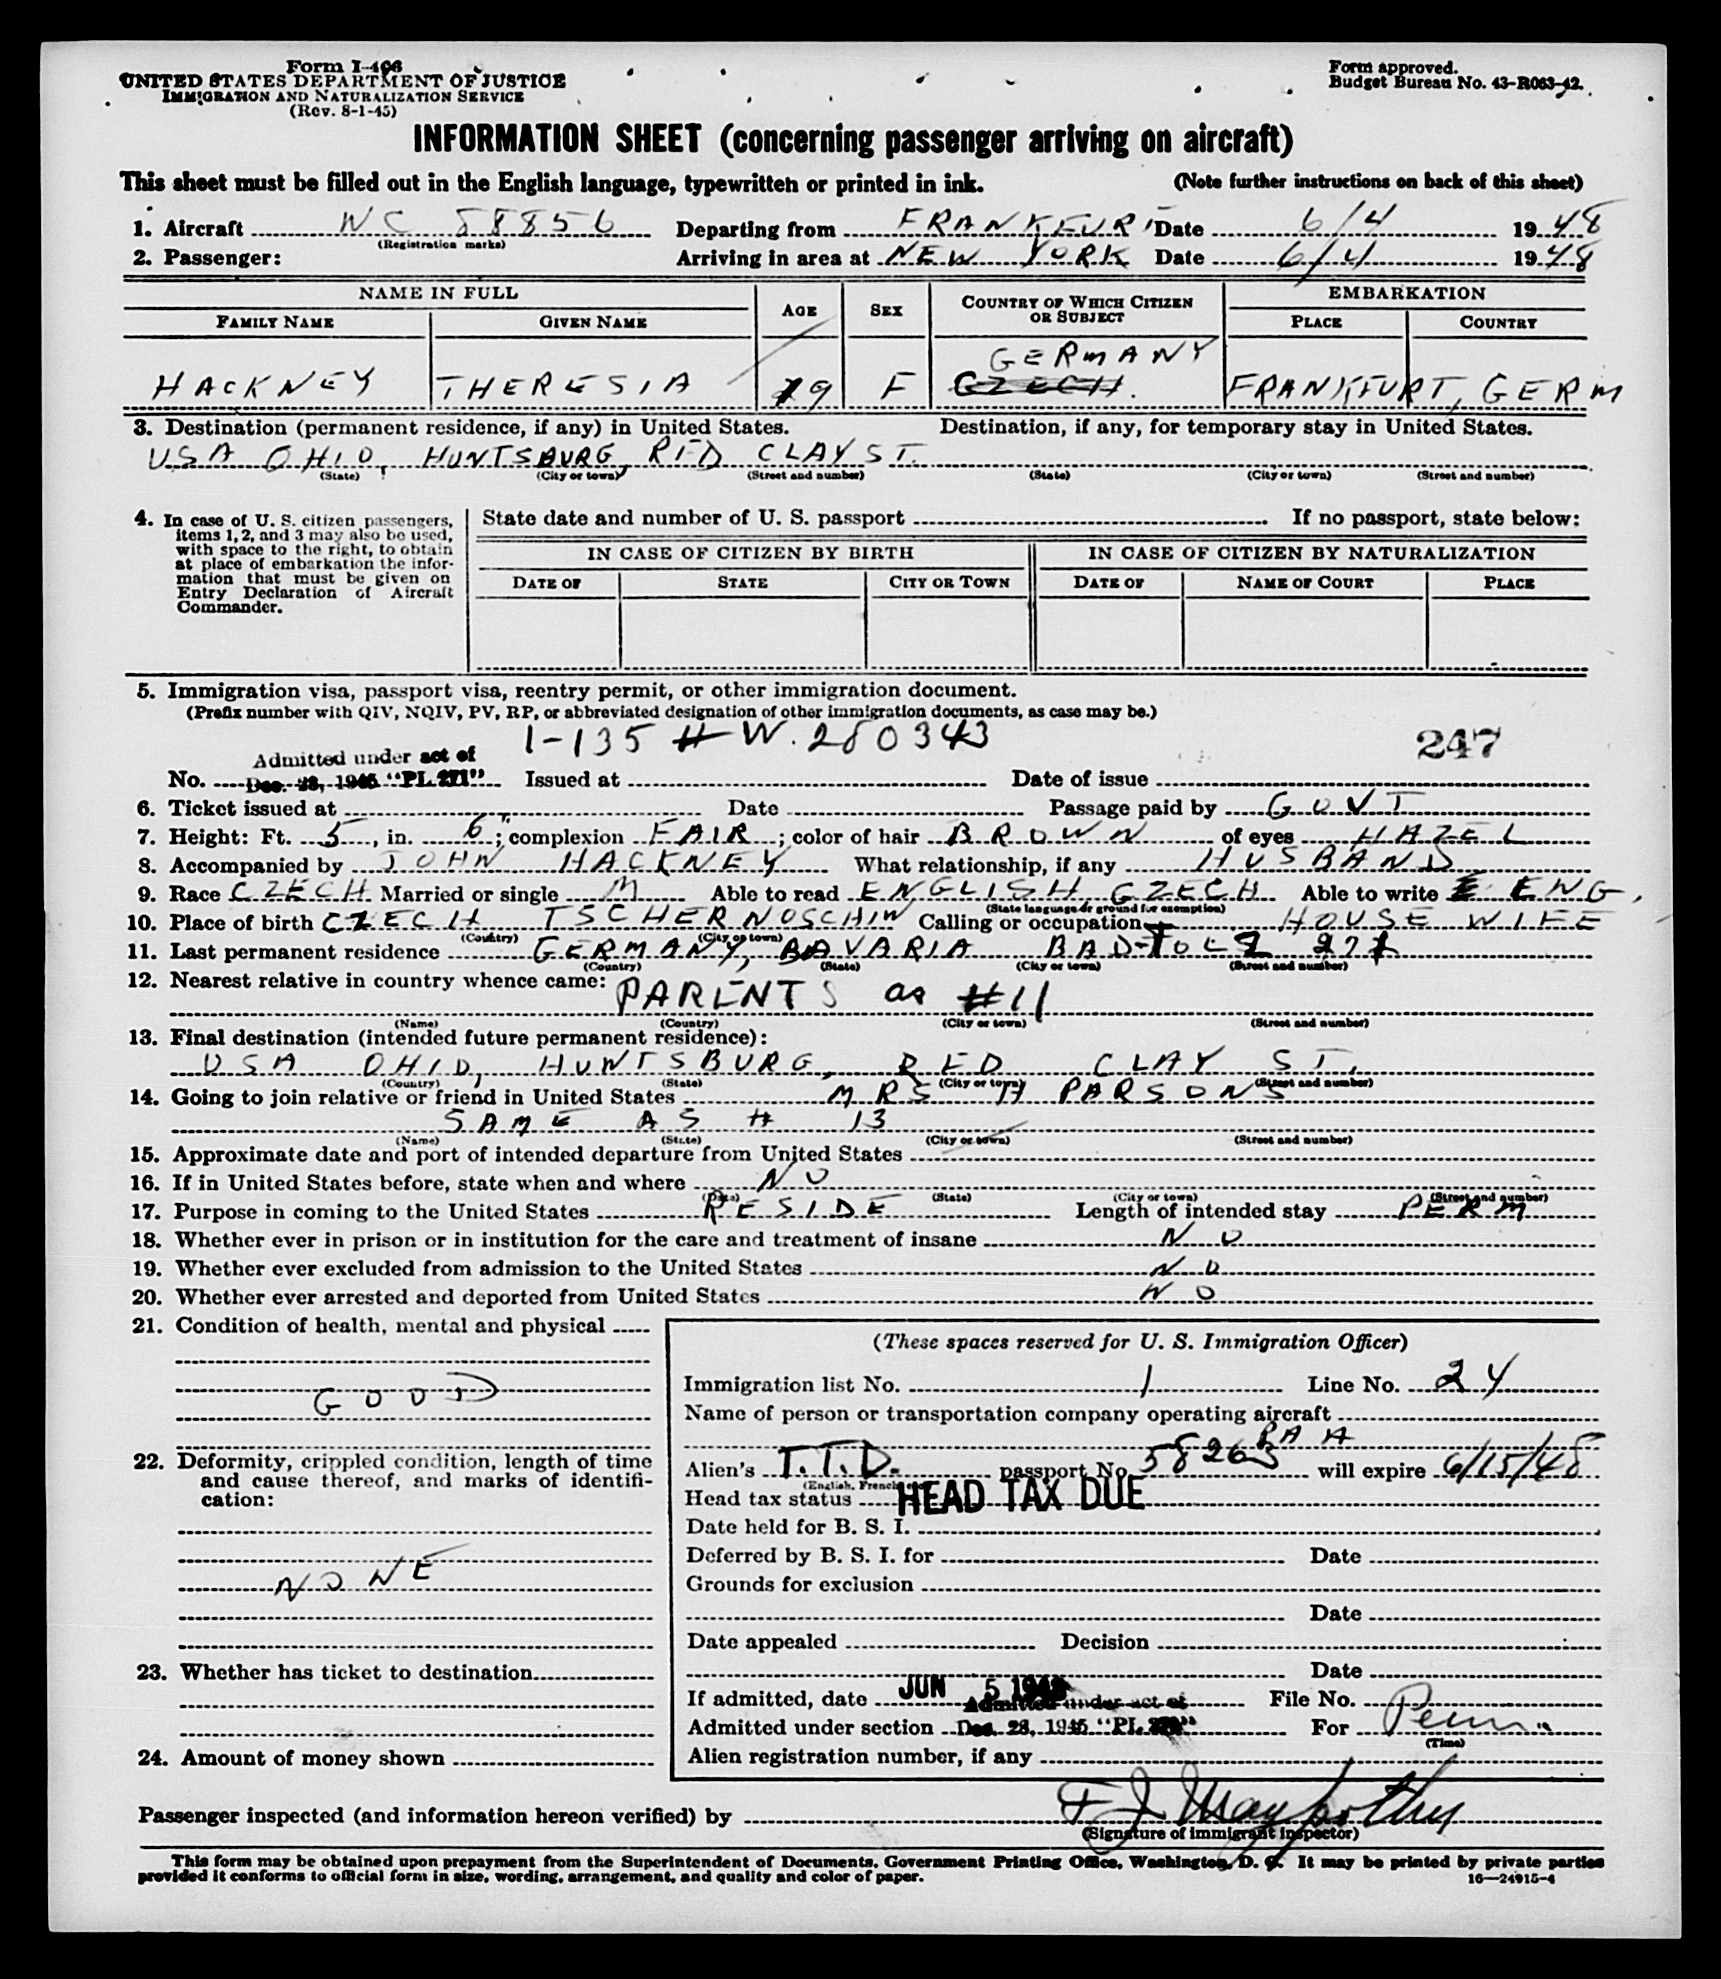 Form I-466
UNITED STATES DEPARTMENT OF JUSTICE
IMMIGRATION AND NATURALIZATION SERVICE
(Rev. 8-1-45)
Form approved.
Budget Bureau No. 43-R063-42.
INFORMATION SHEET (concerning passenger arriving on aircraft)
This sheet must be filled out in the English language, typewritten or printed in ink. (Note further instructions on back of this sheet)
1. Aircraft NC 88856 Departing from FRANKFURT Date 6/4 1948
(Registration marks)
2. Passenger: Arriving in area at NEW YORK Date 6/4 1948
NAME IN FULL AGE SEX COUNTRY OF WHICH CITIZEN OR SUBJECT EMBARKATION
FAMILY NAME GIVEN NAME PLACE COUNTRY
GERMANY
HACKNEY THERESIA 19 F CZECH. FRANKFURT, GERM
3. Destination (permanent residence, if any) in United States. Destination, if any, for temporary stay in United States.
USA OHIO, HUNTSBURG, RED CLAY ST.
(State) (City or town) (Street and number) (State) (City or town) (Street and number)
4. In case of U. S. citizen passengers, items 1, 2, and 3 may also be used, with space to the right, to obtain at place of embarkation the information that must be given on Entry Declaration of Aircraft Commander.
State date and number of U. S. passport If no passport, state below:
IN CASE OF CITIZEN BY BIRTH IN CASE OF CITIZEN BY NATURALIZATION
DATE OF STATE CITY OR TOWN DATE OF NAME OF COURT PLACE
5. Immigration visa, passport visa, reentry permit, or other immigration document.
(Prefix number with QIV, NQIV, PV, RP, or abbreviated designation of other immigration documents, as case may be.)
1-135 # W. 280343
247
Admitted under act of
No. Dec. 28, 1945 "PL 271" Issued at Date of issue
6. Ticket issued at Date Passage paid by GOVT
7. Height: Ft. 5, in. 6"; complexion FAIR; color of hair BROWN of eyes HAZEL
8. Accompanied by JOHN HACKNEY What relationship, if any HUSBAND
9. Race CZECH Married or single M Able to read ENGLISH CZECH Able to write E ENG,
(State language or ground for exemption)
10. Place of birth CZECH TSCHERNOSCHIN Calling or occupation HOUSE WIFE
(Country) (City or town)
11. Last permanent residence GERMANY, BAVARIA BAD-TOLZ
(Country) (State) (City or town) (Street and number)
12. Nearest relative in country whence came: PARENTS as #11
(Name) (Country) (City or town) (Street and number)
13. Final destination (intended future permanent residence):
USA OHIO, HUNTSBURG, RED CLAY ST.
(Country) (State) (City or town) (Street and number)
14. Going to join relative or friend in United States MRS H PARSONS
SAME AS # 13
(Name) (State) (City or town) (Street and number)
15. Approximate date and port of intended departure from United States
16. If in United States before, state when and where NO
(Date) (State) (City or town) (Street and number)
17. Purpose in coming to the United States RESIDE Length of intended stay PERM
18. Whether ever in prison or in institution for the care and treatment of insane NO
19. Whether ever excluded from admission to the United States NO
20. Whether ever arrested and deported from United States NO
21. Condition of health, mental and physical
GOOD
22. Deformity, crippled condition, length of time and cause thereof, and marks of identification:
NONE
23. Whether has ticket to destination
24. Amount of money shown
(These spaces reserved for U. S. Immigration Officer)
Immigration list No. 1 Line No. 24
Name of person or transportation company operating aircraft
PAA
Alien's T.T.D. passport No. 58263 will expire 6/15/48
(English, French
Head tax status HEAD TAX DUE
Date held for B. S. I.
Deferred by B. S. I. for Date
Grounds for exclusion
Date
Date appealed Decision
Date
If admitted, date JUN 5 1948 File No.
Admitted under act of
Admitted under section Dec. 28, 1945 "PL 271" For Perm.
(Time)
Alien registration number, if any
Passenger inspected (and information hereon verified) by
(Signature of immigrant inspector)
This form may be obtained upon prepayment from the Superintendent of Documents, Government Printing Office, Washington, D. C. It may be printed by private parties
provided it conforms to official form in size, wording, arrangement, and quality and color of paper.
16—24915-4